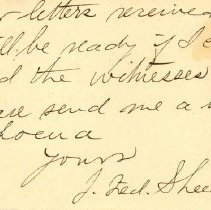 letters received
be ready if I
the witnesses
send me a
Yours
J. Fred. Shee